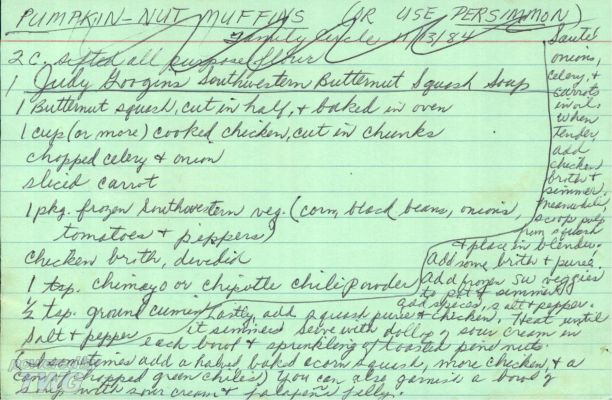 PUMPKIN-NUT MUFFINS (OR USE PERSIMMON)
Family Circle 11/13/84
2 C. sifted all purpose flour
1 Judy Googins Southwestern Butternut Squash Soup
1 Butternut squash, cut in half, & baked in oven
1 cup (or more) cooked chicken, cut in chunks
chopped celery & onion
sliced carrot
1 pkg. frozen Southwestern veg. (corn, black beans, onions,
tomatoes & peppers)
chicken brith, divedid
1 tsp. chimayo or chipotle chili powder
½ tsp. ground cumin
Salt & pepper
Saute
onions,
celery, &
carrots
in oil.
When
tender,
add
chicken
brith &
simmer.
Meanwhile,
scoop pulp
from squash
& place in blender.
Add some brith & pureé.
Add frozen SW veggies
to pot & simmer,
add spices, salt & pepper.
Lastly, add squash pureé & chicken, Heat until
it simmers. Serve with dollop of sour cream in
each bowl & sprinkling of toasted pine nuts.
I sometimes add a halved baked acorn squash, more chicken, & a
can of chopped green chiles) You can also garnish a bowl of
soup with sour cream & jalapeño jelly.